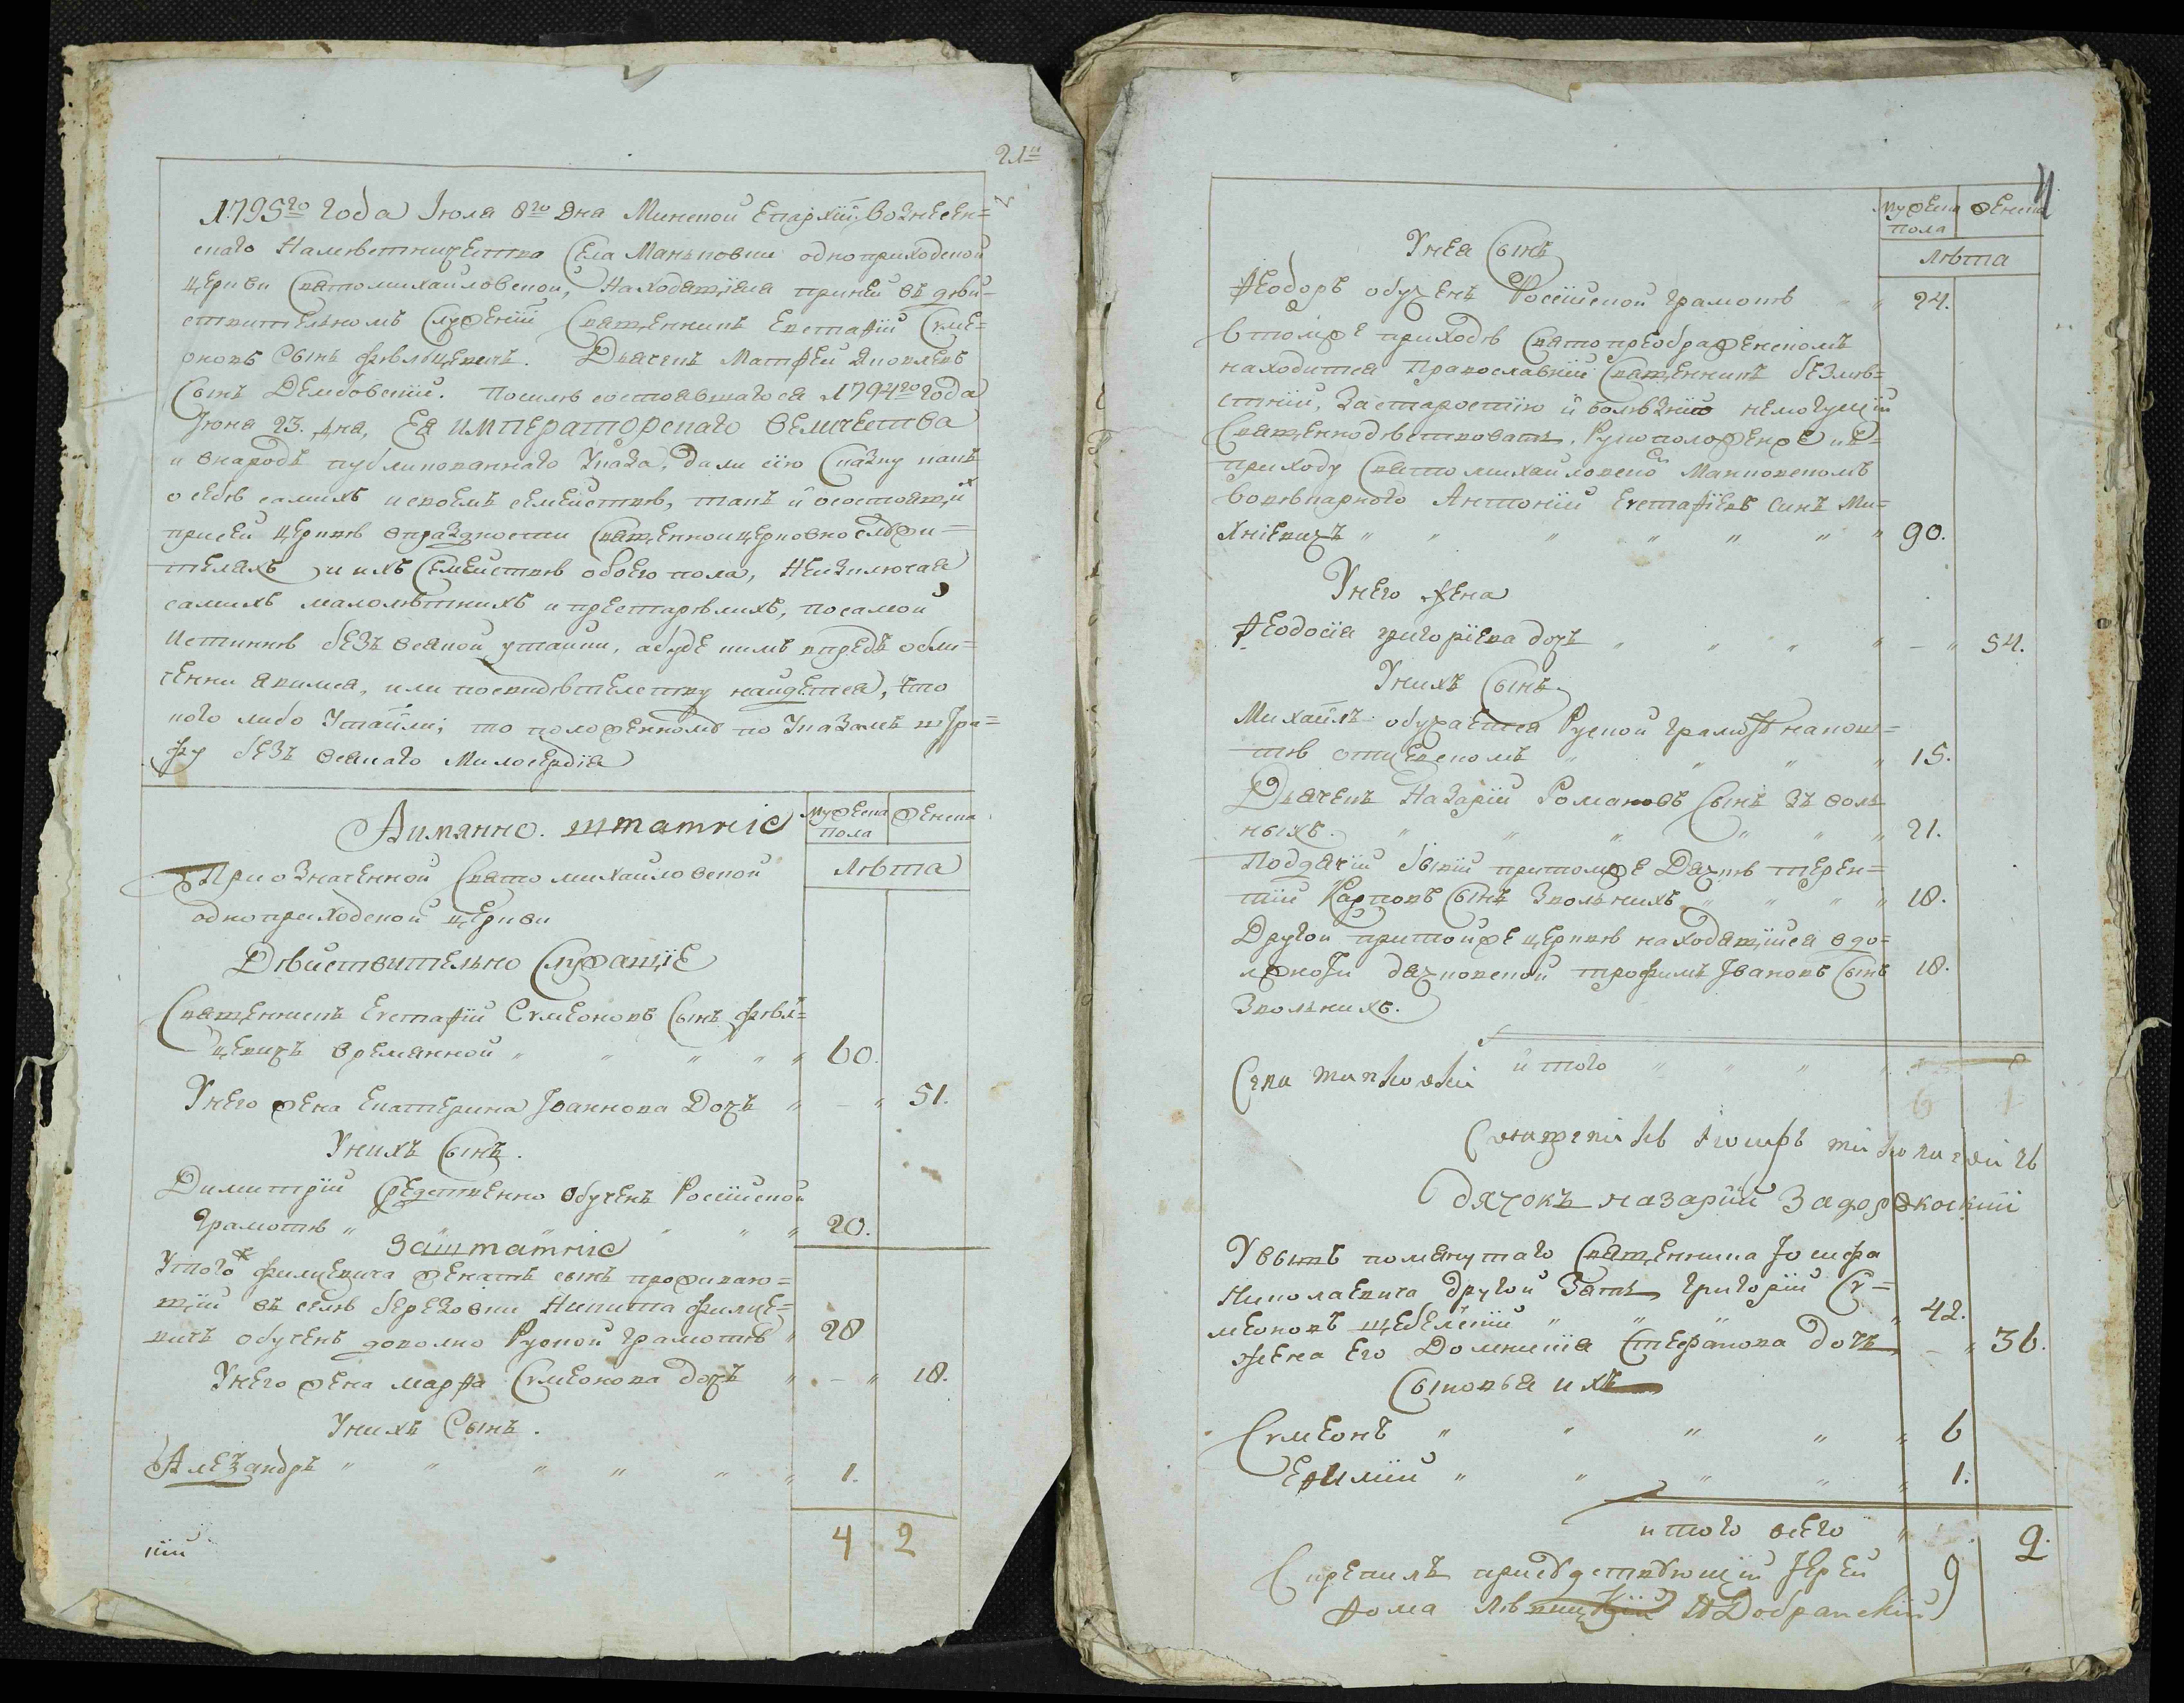 1795го года Іюля 8го дня Минской Епархіи, вознесен=
скаго Намѣстничества Села Маньковки одноприходской
церкви Святомихайловской, Находящіися приней въ дѣй=
ствительномъ Служеніи Священникъ Евстафій Сѵме=
оновъ Сынъ Фѣлѣцевичъ. Дьячекъ Матфей Яковлевъ
Сынъ Дембовскій. Посилѣ состоявшагося 1794го года
Іюня 23. дня, Ея императорскаго величества
и внародъ публикованнаго Указа, дали сію Сказку какъ
о себѣ самихъ и своемъ семействѣ, такъ и осостоящих
присей церквѣ впраздности Священноцерковнослужи=
теляхъ и ихъ Семействѣ обоего пола, Неизключая
самихъ малолѣтнихъ и престарѣлихъ, посамой
Истиннѣ безъ всякой утайки, абуде кимъ впредъ обли=
ченни явимся, или посвидѣтелству найдется, что
кого либо Утаили; то положенному по Указамъ штра=
фу безъ всякаго Милосердія
Аимянно. штатніе
Мужеска пола
Женска
Лѣта
Приозначенной Святомихайловской
одноприходской церкви
Дѣйствительно Служащіе
Священникъ Евстафій Сѵмеоновъ Сынъ Фѣлѣ=
цевичъ времянной " " " " " 60.
Унего жена Екатерина Іоаннова Дочъ " — " 51.
Унихъ Сынъ.
Димитрій средственно Обученъ Россійской
Грамотѣ " " " " " 20.
Заштатніе
Утого* Филцевича женатъ сынъ проживаю=
щій въ селѣ березовки Никита Филце=
вичъ обученъ доволно Руской Грамотѣ " 28
Унего жена Марфа Сѵмеонова дочъ " — " 18.
Унихъ Сынъ.
Алеѯандръ " " " " " " 1.
4 2
кій
Мужеска пола
Женска
Лѣта
Унея Сынъ
Ѳеодоръ обученъ Россійской Грамотѣ " " 24.
Втомже приходѣ Святопреображенскомъ
находится Православній Священникъ безмѣ=
стній, Застаростію и болѣзнію немогущій
Священнодѣствовать, Рукоположенже къ
приходу Святомихайловско Манковскомъ
Антоній Евстафіевъ Синъ Ми=
хніевичъ " " " " " " " 90.
Унего жена
Ѳеодосія григоріева дочъ " " " " — " 54.
Унихъ Сынъ
Михаилъ обучается Руской Грамотѣ накош=
тѣ отцевскомъ " " " " 15.
Дьячекъ Назарій Романовъ Сынъ зъ воль
ныхъ. " " " " " " 21.
Поддячій бывій притомже Дячкѣ терен=
тій Карповъ Сынъ Звольнихъ " " " " 18.
Другой притойже церквѣ находящійся вдо=
лжности дячковской трофимъ Івановъ Сынъ 18.
Звольнихъ.
итого " " " "
6 1
Села манковки
Священикъ Іосифъ николаевичъ
дячокъ назарий Задорожский
Убытъ помянутаго Священника Іосифа
Николаевича другой Зять Григорій Сѵ=
меоновъ щебелскій " " " " 42.
жена Его Домникія Стефанова дочъ — " 36.
Сыновья ихъ
Сѵмеонъ " " " " " 6
Ефимій " " " " " 1.
итого всего " 9 2.
Скрепилъ присудствующій Іерей
Ѳома Лѣвицкій Добранскій